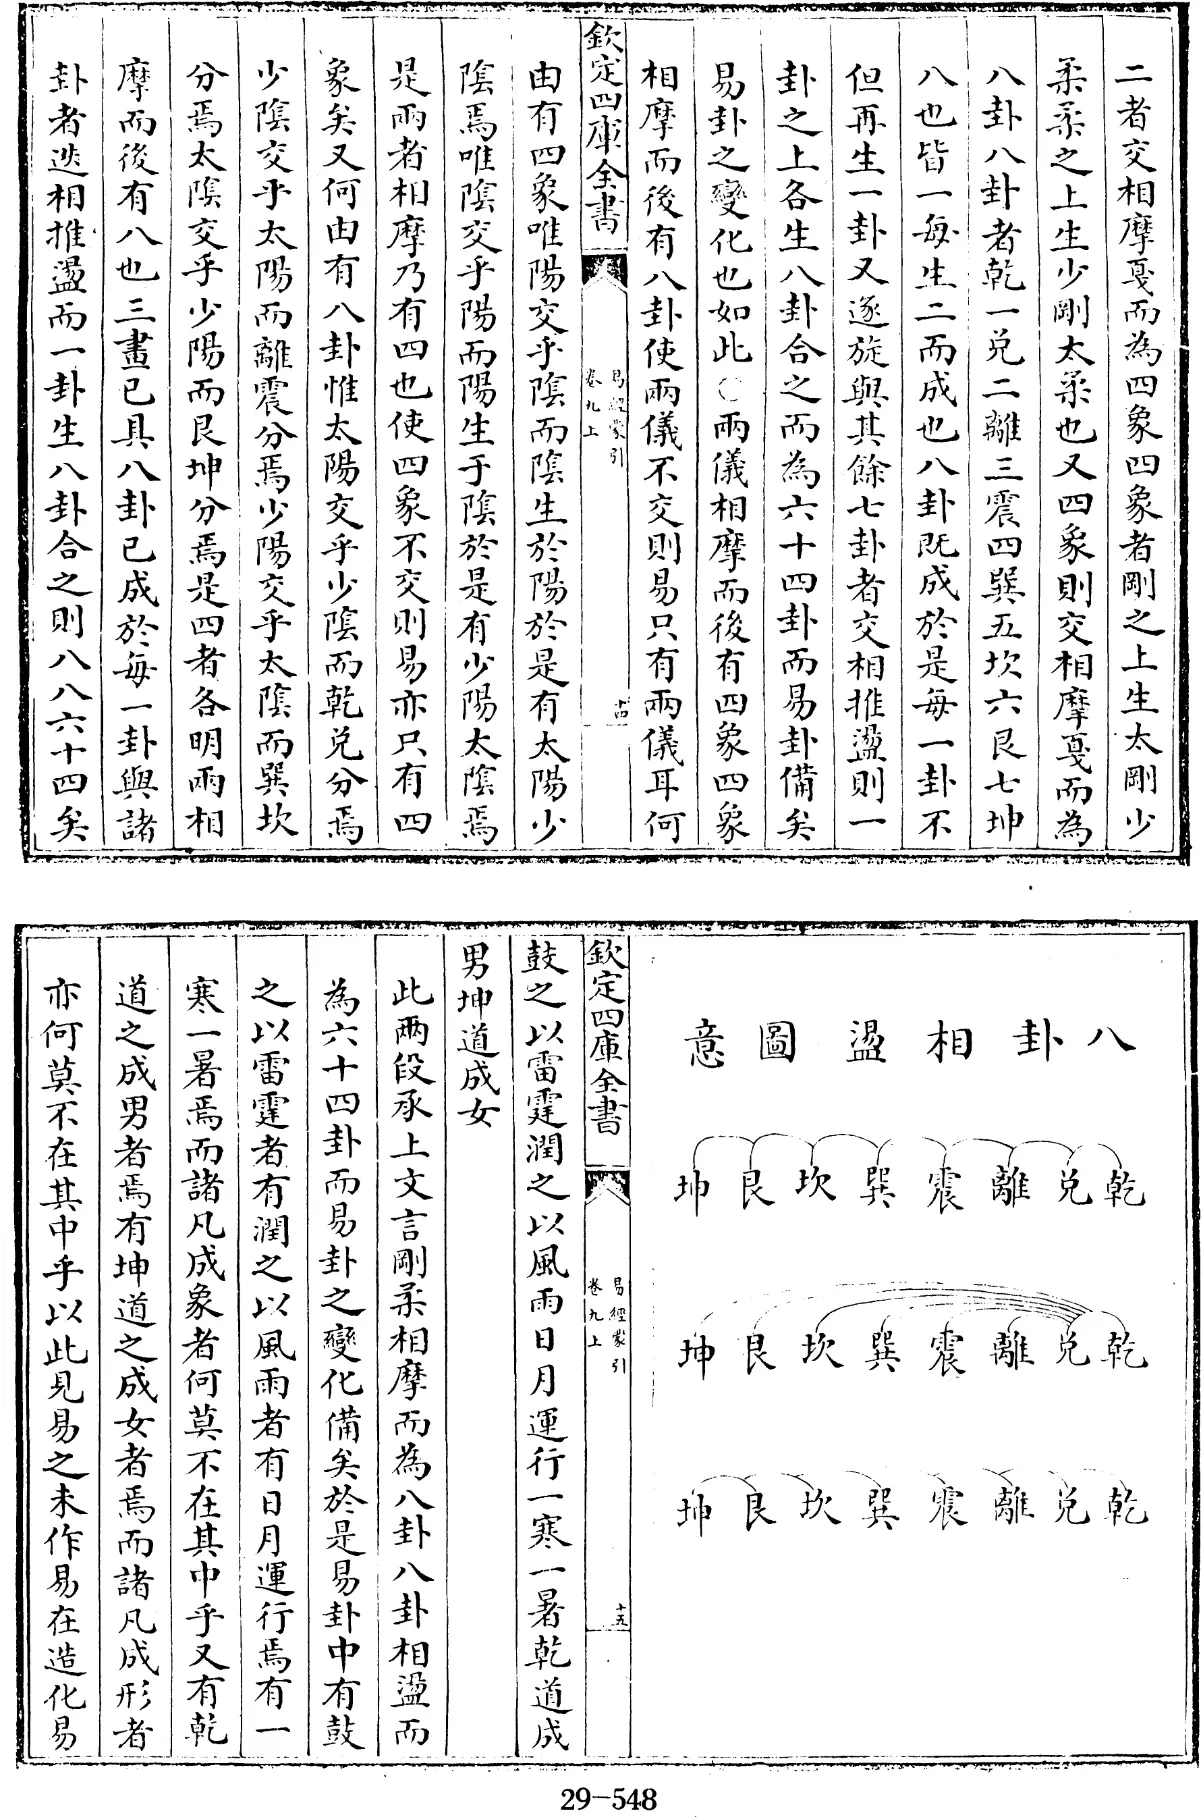 二者交相摩戛而為四象四象者剛之上生太剛少
柔柔之上生少剛太柔也又四象則交相摩戛而為
八卦八卦者乾一兌二離三震四巽五坎六艮七坤
八也皆一每生二而成也八卦既成於是每一卦不
但再生一卦又逐旋與其餘七卦者交相推盪則一
卦之上各生八卦合之而為六十四卦而易卦備矣
易卦之變化也如此〇兩儀相摩而後有四象四象
相摩而後有八卦使兩儀不交則易只有兩儀耳何
欽定四庫全書
易經蒙引
卷九上
十四
由有四象唯陽交乎陰而陰生於陽於是有太陽少
陰焉唯陰交乎陽而陽生于陰於是有少陽太陰焉
是兩者相摩乃有四也使四象不交則易亦只有四
象矣又何由有八卦惟太陽交乎少陰而乾兌分焉
少陰交乎太陽而離震分焉少陽交乎太陰而巽坎
分焉太陰交乎少陽而艮坤分焉是四者各明兩相
摩而後有八也三畫已具八卦已成於每一卦與諸
卦者迭相推盪而一卦生八卦合之則八八六十四矣
八卦相盪圖意
乾兌離震巽坎艮坤
乾兌離震巽坎艮坤
乾兌離震巽坎艮坤
欽定四庫全書
易經蒙引
卷九上
十五
鼓之以雷霆潤之以風雨日月運行一寒一暑乾道成
男坤道成女
此兩段承上文言剛柔相摩而為八卦八卦相盪而
為六十四卦而易卦之變化備矣於是易卦中有鼓
之以雷霆者有潤之以風雨者有日月運行焉有一
寒一暑焉而諸凡成象者何莫不在其中乎又有乾
道之成男者焉有坤道之成女者焉而諸凡成形者
亦何莫不在其中乎以此見易之未作易在造化易
29-548